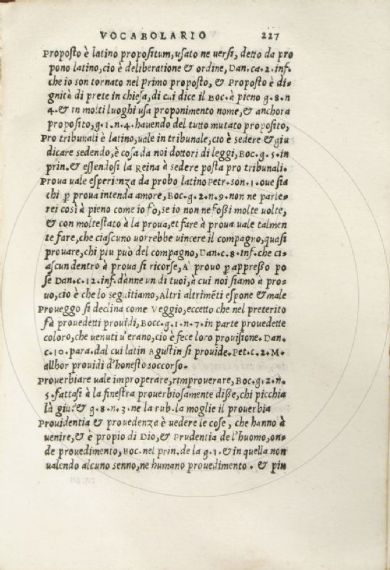 VOCABOLARIO 227
Proposto è latino propositum, usato ne uersi, detto da pro
pono latino, cio è deliberatione & ordine, Dan. ca. 2. inf.
che io son tornato nel primo proposto, & Proposto è di=
gnità di prete in chiesa, di cui dice il Boc. à pieno g. 8. n
4. & in molti luoghi usa proponimento nome, & anchora
proposito, g. 1. n. 4. hauendo del tutto mutato proposito,
Pro tribunali è latino, uale in tribunale, cio è sedere & giu
dicare sedendo, è cosa da noi dottori di leggi, Boc. g. 5. in
prin. & essendosi la Reina à sedere posta pro tribunali.
Proua uale esperienza da probo latino Petr. son. 1. oue sia
chi ꝑ proua intenda amore, Boc. g. 2. n. 9. non ne parle=
rei così à pieno come io fo, se io non ne fossi molte uolte,
& con moltestato à la proua, et fare à proua uale talmen
te fare, che ciascuno uorrebbe uincere il compagno, quasi
prouare, chi piu può del compagno, Dan. c. 8. inf. che ci=
ascun dentro à proua si ricorse, A prouo ꝑ appresso po
se Dan. c. 12. inf. danne un di tuoi, à cui noi siamo à pro=
uo, cio è che lo seguitiamo, Altri altrimẽti espone & male
Proueggo si declina come Veggio, eccetto che nel preterito
fà prouedetti prouidi, Bocc. g. 1. n. 7. in parte prouedette
coloro, che uenuti u'erano, cio è fece loro prouisione. Dan.
c. 10. para. dal cui latin Agustin si prouide. Pet. c. 2. M.
allhor prouidi d'honesto soccorso.
Prouerbiare uale improperare, rimprouerare, Boc. g. 2. n.
5. fattasi à la finestra prouerbiosamente disse, chi picchia
là giu? & g. 8. n. 3. ne la rub. la moglie il prouerbia
Prouidentia & prouedenza è uedere le cose, che hanno à
uenire, & è propio di Dio, & Prudentia de l'huomo, on=
de prouedimento, Boc. nel prin. de la g. 1. & in quella non
ualendo alcuno senno, ne humano prouedimento. & piu